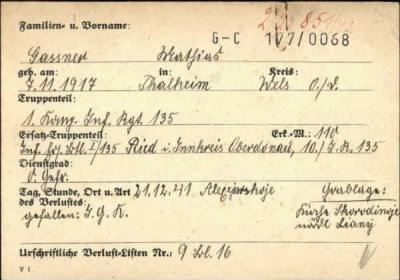 Familien- u. Vorname:
G-C 177/0068
Gassner Mathias
geb. am: in: Kreis:
7.11.1917 Thalheim Wels O./D.
Truppenteil:
1. Komp. Inf. Rgt. 135
Ersatz-Truppenteil: Erk.-M.: 110
Inf. Ers. Btl. I/135 Ried i. Innkreis Oberdonau, 10./J.R. 135
Dienstgrad:
O. Gefr.
Tag, Stunde, Ort u. Art 21.12.41 Grablage:
des Verlustes:
gefallen: Kirche Skorodinoje
nördl. Liany
Urschriftliche Verlust-Listen Nr.: 9 Bl. 16
V 1